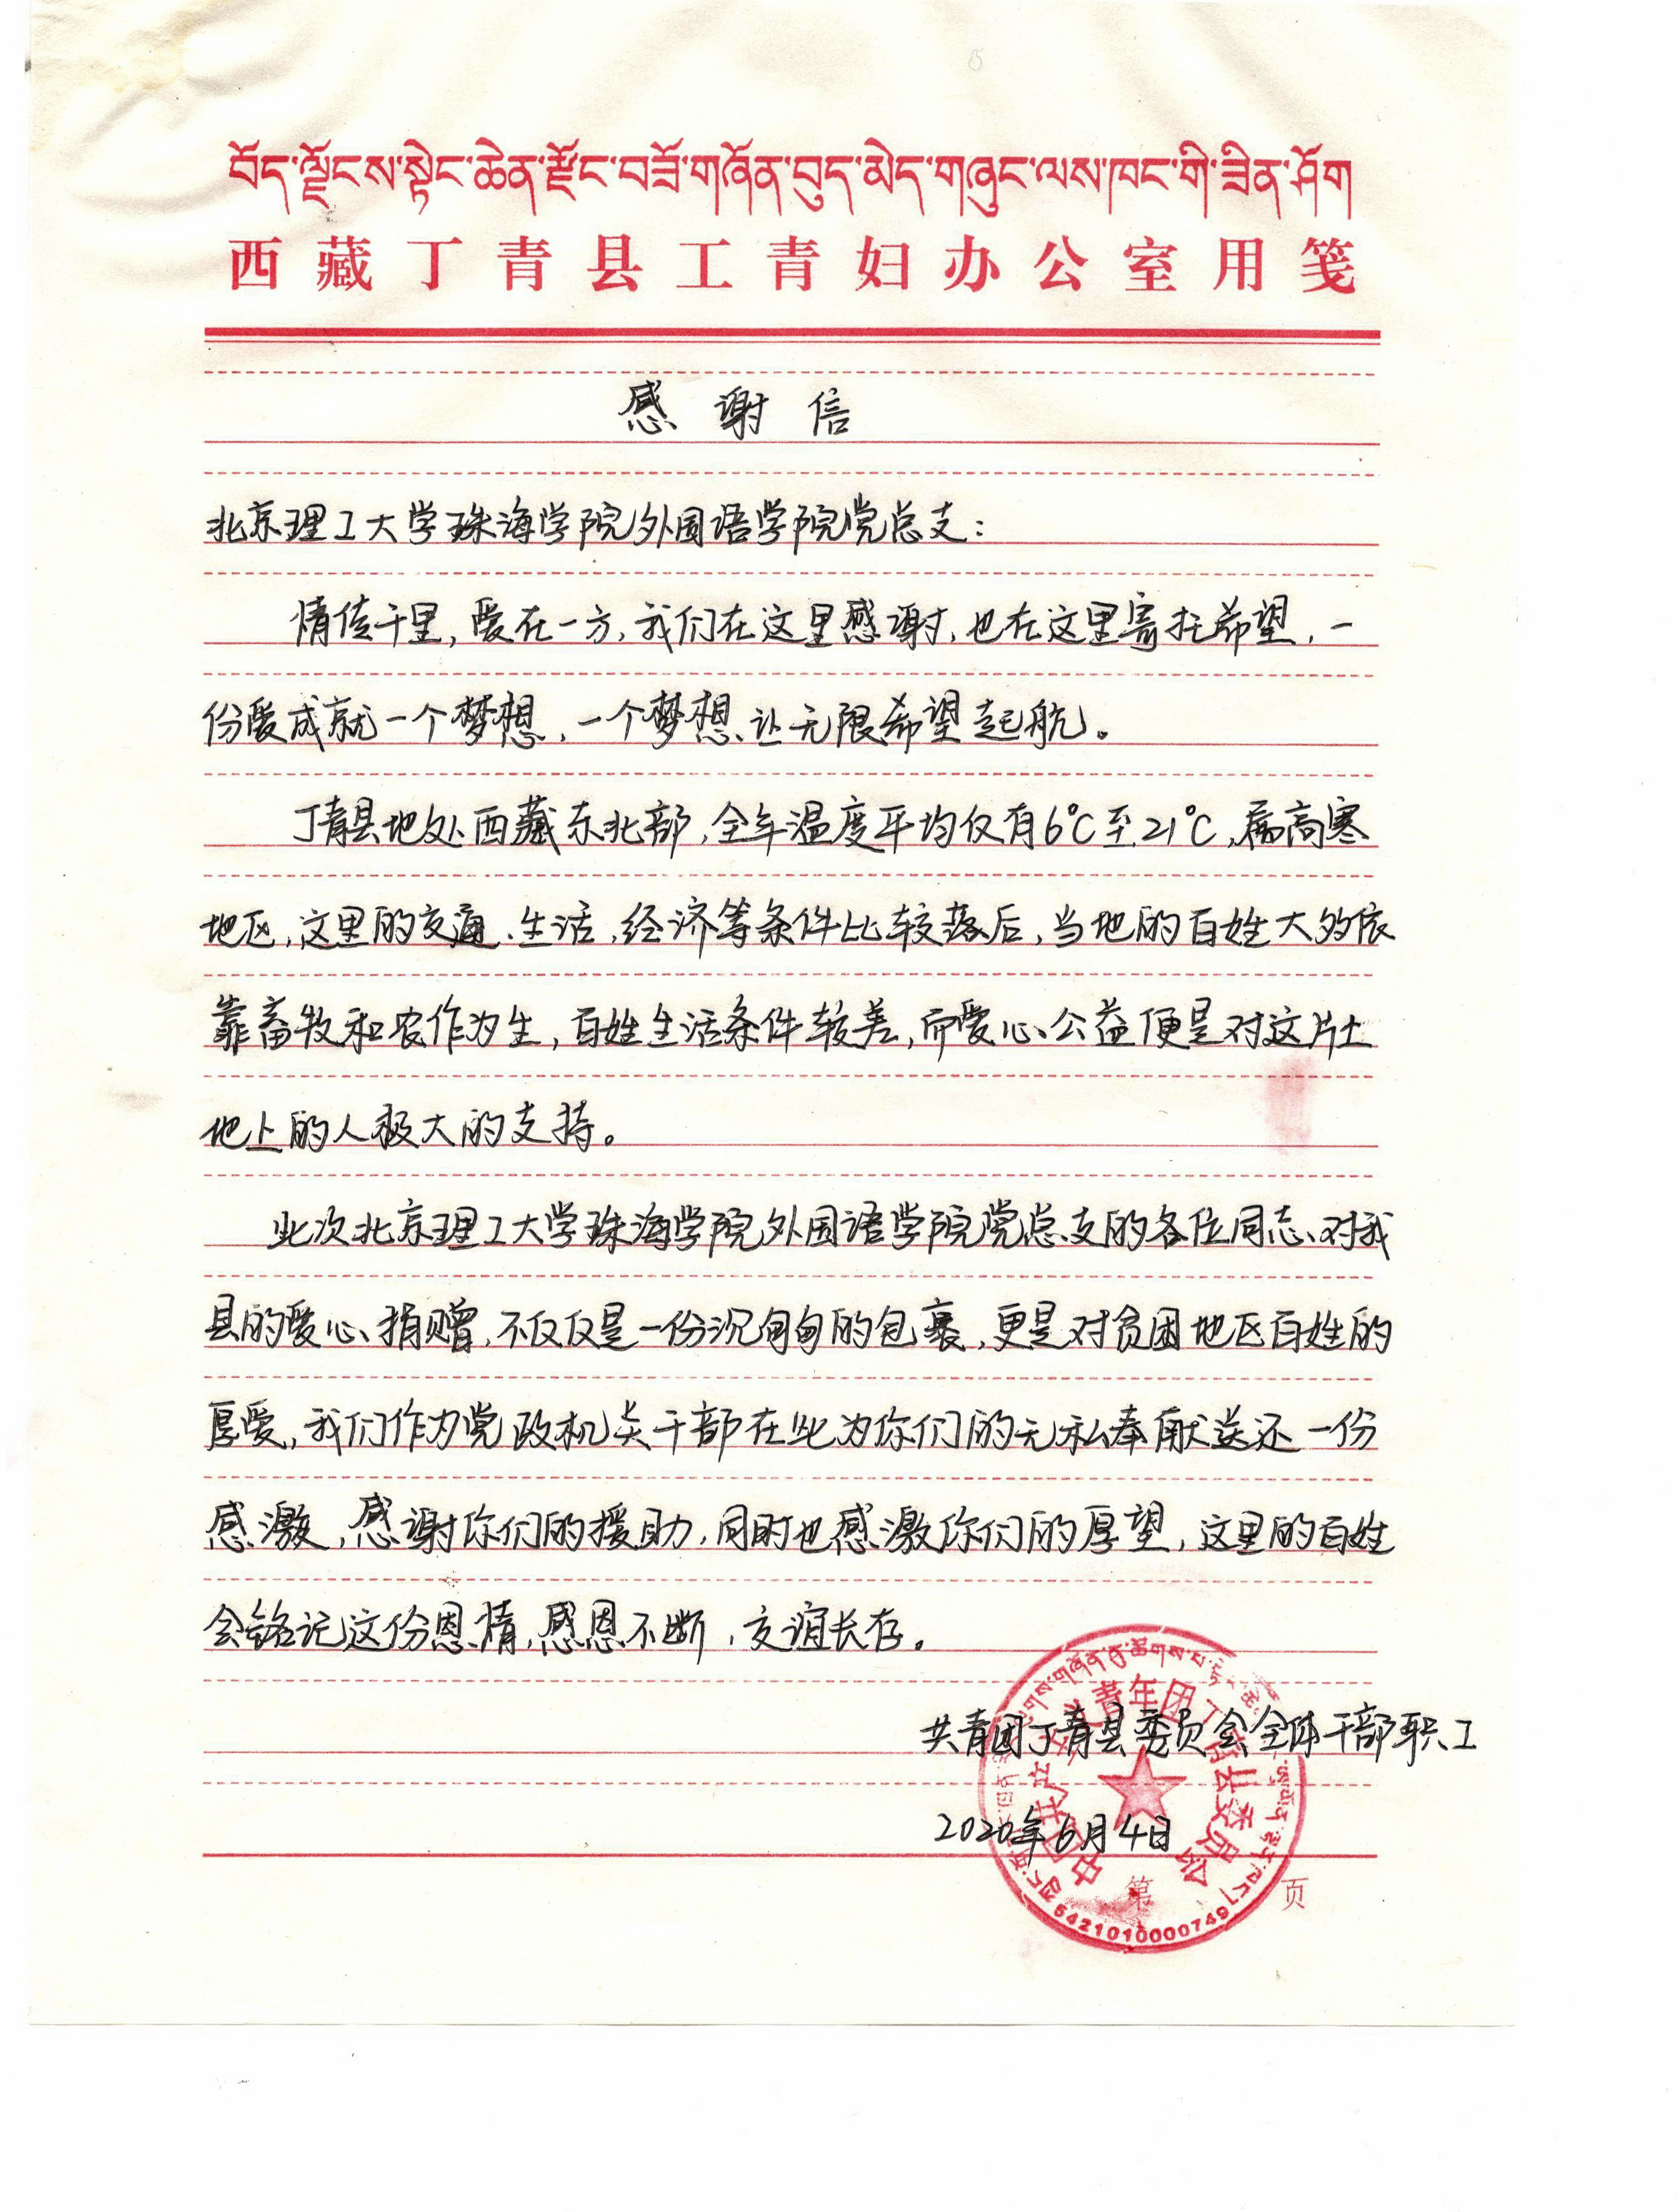 བོད་ལྗོངས་སྟེང་ཆེན་རྫོང་བཟོ་གཞོན་བུད་མེད་གཞུང་ལས་ཁང་གི་ཟིན་ཤོག
西藏丁青县工青妇办公室用笺
感谢信
北京理工大学珠海学院外国语学院党总支：
情传千里，爱在一方，我们在这里感谢，也在这里寄托希望，一
份爱成就一个梦想，一个梦想让无限希望起航。
丁青县地处西藏东北部，全年温度平均仅有6℃至21℃，属高寒
地区，这里的交通、生活，经济等条件比较落后，当地的百姓大多依
靠畜牧和农作为生，百姓生活条件较差，而爱心公益便是对这片土
地上的人极大的支持。
此次北京理工大学珠海学院外国语学院党总支的各位同志对我
县的爱心捐赠，不仅仅是一份沉甸甸的包裹，更是对贫困地区百姓的
厚爱，我们作为党政机关干部在此为你们的无私奉献送还一份
感激，感谢你们的援助，同时也感激你们的厚望，这里的百姓
会铭记这份恩情，感恩不断，友谊长存。
共青团丁青县委员会全体干部职工
2020年6月4日
中国共产主义青年团丁青县委员会
5421010000749
第 页